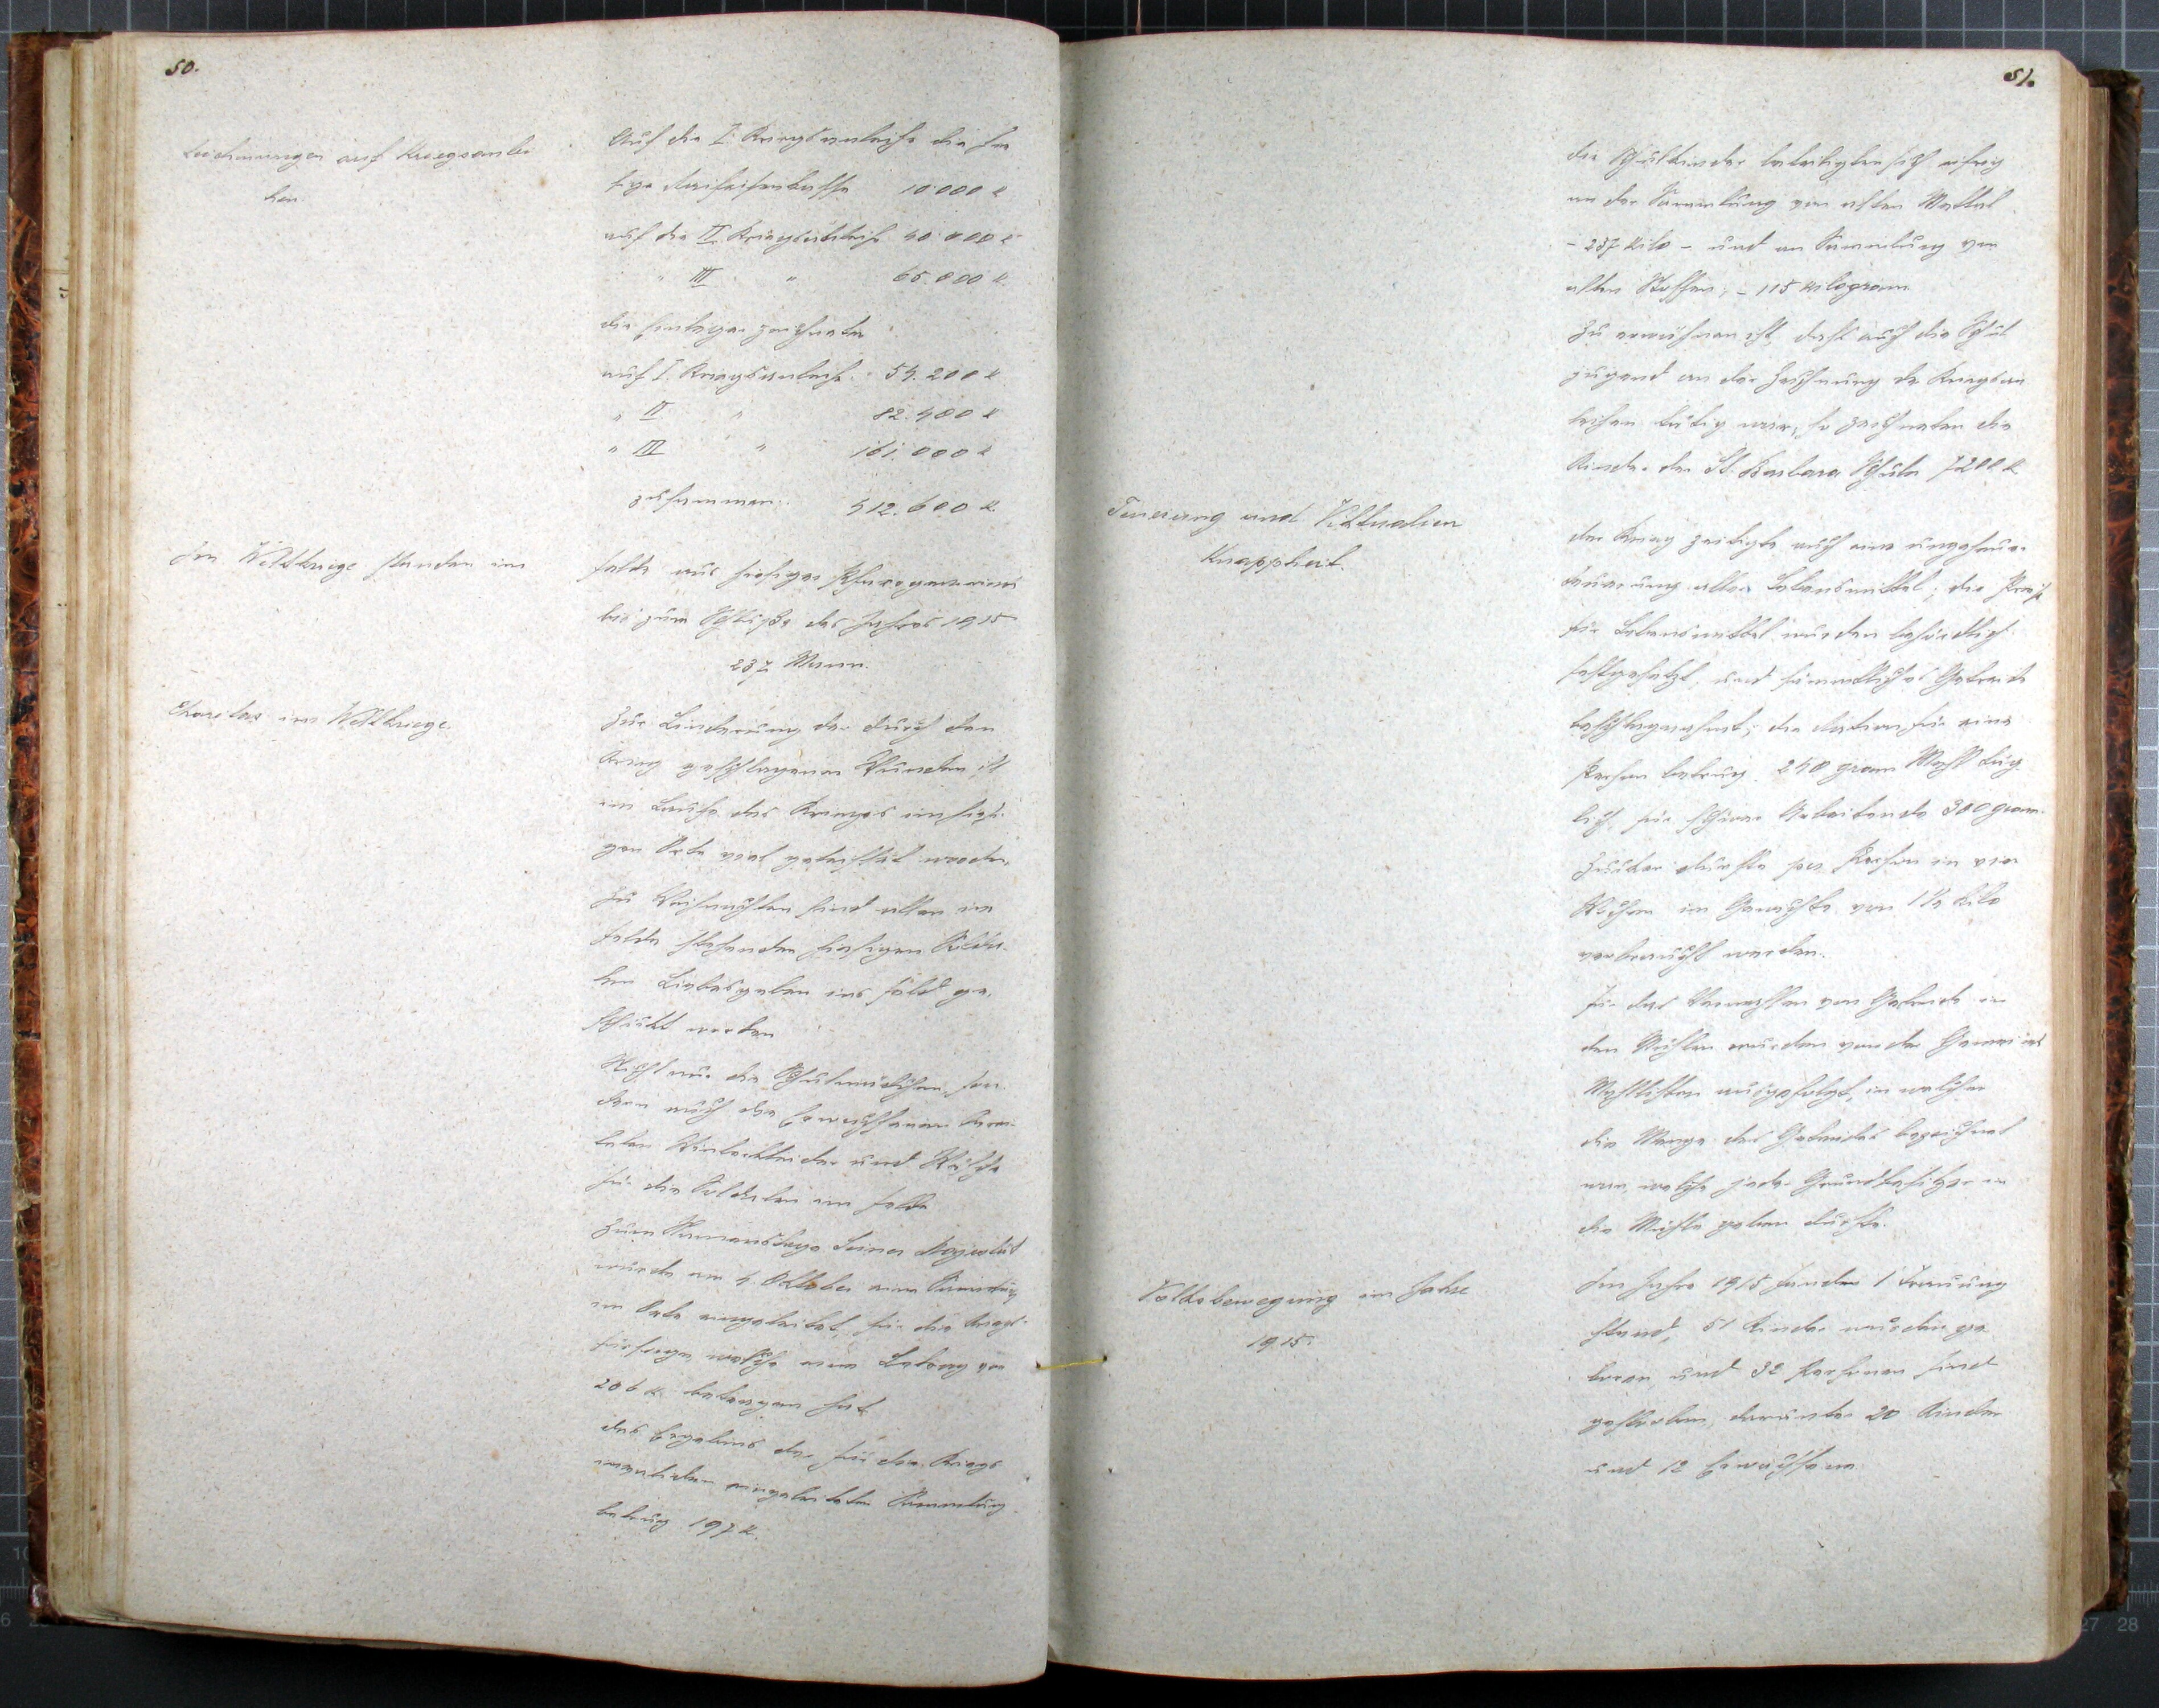 50.
Zeichnungen auf Kriegsanlei
hen.
Auf die I. Kriegsanleihe die hie
sige Raifeisenkasse 10.000 K
auf die II. Kriegsanleihe 40.000 K
" III " 65.000 K.
die hiesigen zeichneten
auf I. Kriegsanleihe 54.200 K
" II " 82.400 K
" III " 161.000 K
zusammen: 412.600 K.
Im Weltkriege standen im
Felde aus hiesiger Pfarrgemeinde
bis zum Schluße des Jahres 1915
237 Mann.
Charitas im Weltkriege.
Zur Linderung der durch den
Krieg geschlagenen Wunden ist
im Laufe des Krieges im hiesi-
gen Orte viel geleistet worden.
Zu Weihnachten sind allen im
Felde stehenden hiesigen Solda-
ten Liebesgaben ins Feld ge-
schickt worden
Nicht nur die Schulmädchen, son-
dern auch die Erwachsenen
Winterkleider und Wäsche
für die Soldaten im Felde
Zum Namenstage Seiner Majestät
wurde am 4. Oktober eine Sammlung
im Orte eingeleitet, für die Kriegs-
fürsorge, welche einen Betrag von
206 K. betragen hat
das Ergebnis der für die Kriegs
invaliden eingeleiteten Sammlung
betrug 197 K.
51.
die Schulkinder beteiligten sich eifrig
an der Sammlung von alten Mettal
- 237 Kilo - und an Sammlung von
alten Stoffen; - 115 Kilogram
Zu erwähnen ist, daß auch die Schul
jugend an der Zeichnung der Kriegsan
leihen tätig war; so zeichneten die
Kinder der St. Barbara Schule 7200 K
Teuerung und Viktualien
Knappheit.
Der Krieg zeitigte auch eine ungeheuere
Teuerung aller Lebensmittel; die Preise
für Lebensmittel wurden behördlich
festgesetzt, und sämmtliches Getreide
beschlagnahmt; die Ration für eine
Person betrug 240 gram Mehl täg
lich für schwer Arbeitende 300 gram.
Zucker durfte per Person in vier
Wochen im Gewichte von 1 1/4 Kilo
verbraucht werden.
Für das Vermahlen von Getreide in
den Mühlen wurden von der Gemeinde
Mahlkarten ausgefolgt, in welcher
die Menge des Getreides bezeichnet
war, welche jeder Grundbesitzer in
die Mühle geben durfte.
Volksbewegung im Jahre
1915.
Im Jahre 1915 fanden 1 Trauung
statt, 51 Kinder wurden ge
boren, und 32 Personen sind
gestorben, darunter 20 Kinder
und 12 Erwachsene